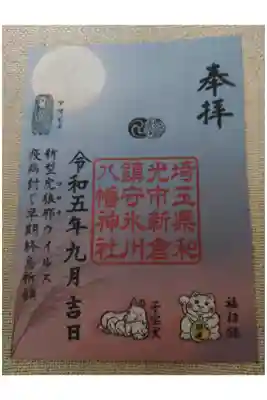 奉拝
埼玉県和
光市新倉
鎮守氷川
八幡神社
令和五年九月吉日
アマビエ
新型ウイルス
疫病封じ早期終息祈願
福招猫
子宝犬